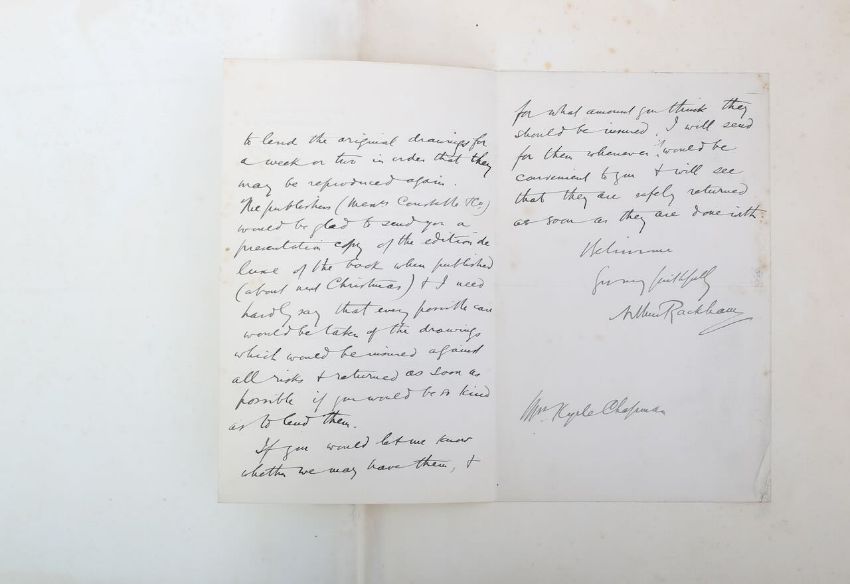 to lend the original drawings for
a week or two in order that they
may be reproduced again.
The publishers (Messrs Constable & Co)
would be glad to send you a
presentation copy of the edition de
luxe of the book when published
(about next Christmas) & I need
hardly say that every possible care
would be taken of the drawings
which would be insured against
all risks & returned as soon as
possible if you would be so kind
as to lend them.
If you would let me know
whether we may have them, &
for what amount you think they
should be insured, I will send
for them whenever it would be
convenient to you & will see
that they are safely returned
as soon as they are done with.
Believe me
Yours faithfully
Arthur Rackham
Mrs. Kyrle Chapman